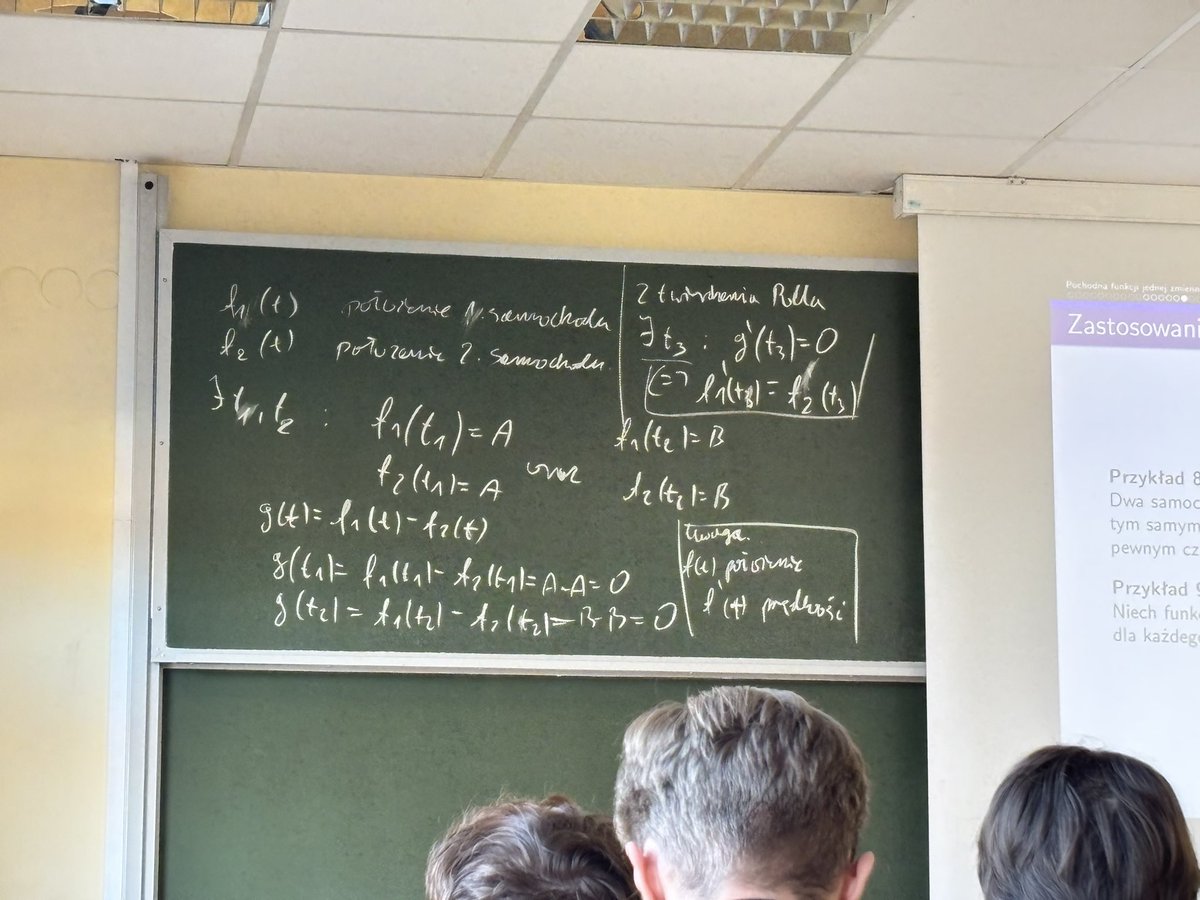 f₁(t) położenie 1. samochodu
f₂(t) położenie 2. samochodu
∃ t₁, t₂ : f₁(t₁) = A
f₂(t₁) = A oraz
f₁(t₂) = B
f₂(t₂) = B
g(t) = f₁(t) - f₂(t)
g(t₁) = f₁(t₁) - f₂(t₁) = A-A = 0
g(t₂) = f₁(t₂) - f₂(t₂) = B-B = 0
Z twierdzenia Rolla
∃ t₃ : g'(t₃) = 0
(=) f₁'(t₃) = f₂'(t₃)
Uwaga.
f(t) położenie
f'(t) prędkość
Pochodna funkcji jednej zmienn
Zastosowani
Przykład 8
Dwa samoc
tym samym
pewnym cz
Przykład 9
Niech funk
dla każdeg